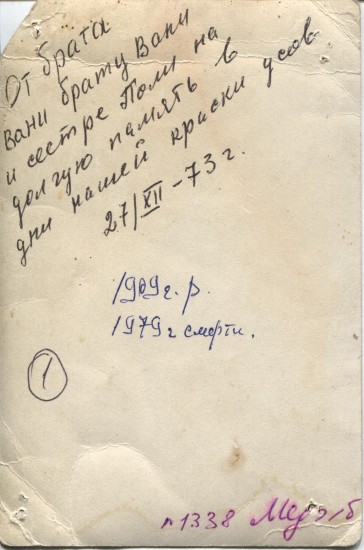 От брата
Вани брату Вани
и сестре Поли на
долгую память в
дни нашей краски усов
27/XII-73г.
1909г.р.
1979г смерти.
1
1338